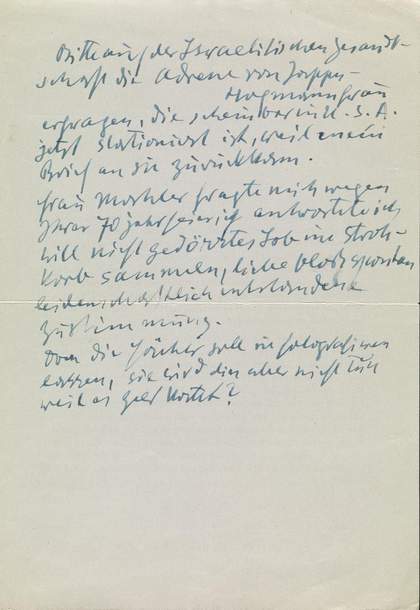 Bitte auf der Israelitischen Gesandt-
schaft die Adresse von
Hagmann Frau
erfragen, die scheinbar in U.S.A.
jetzt stationiert ist, weil mein
Brief an sie zurückkam.
Frau fragte mich wegen
70 jahr feier, ich antwortete ich
will nicht gedörrtes Lob im Stroh-
korb sammeln, liebe bloss spontan
leidenschaftlich entstandene
Zustimmung.
die soll ihn fotografieren
lassen, sie wird dies aber nicht tun
weil es Geld kostet?